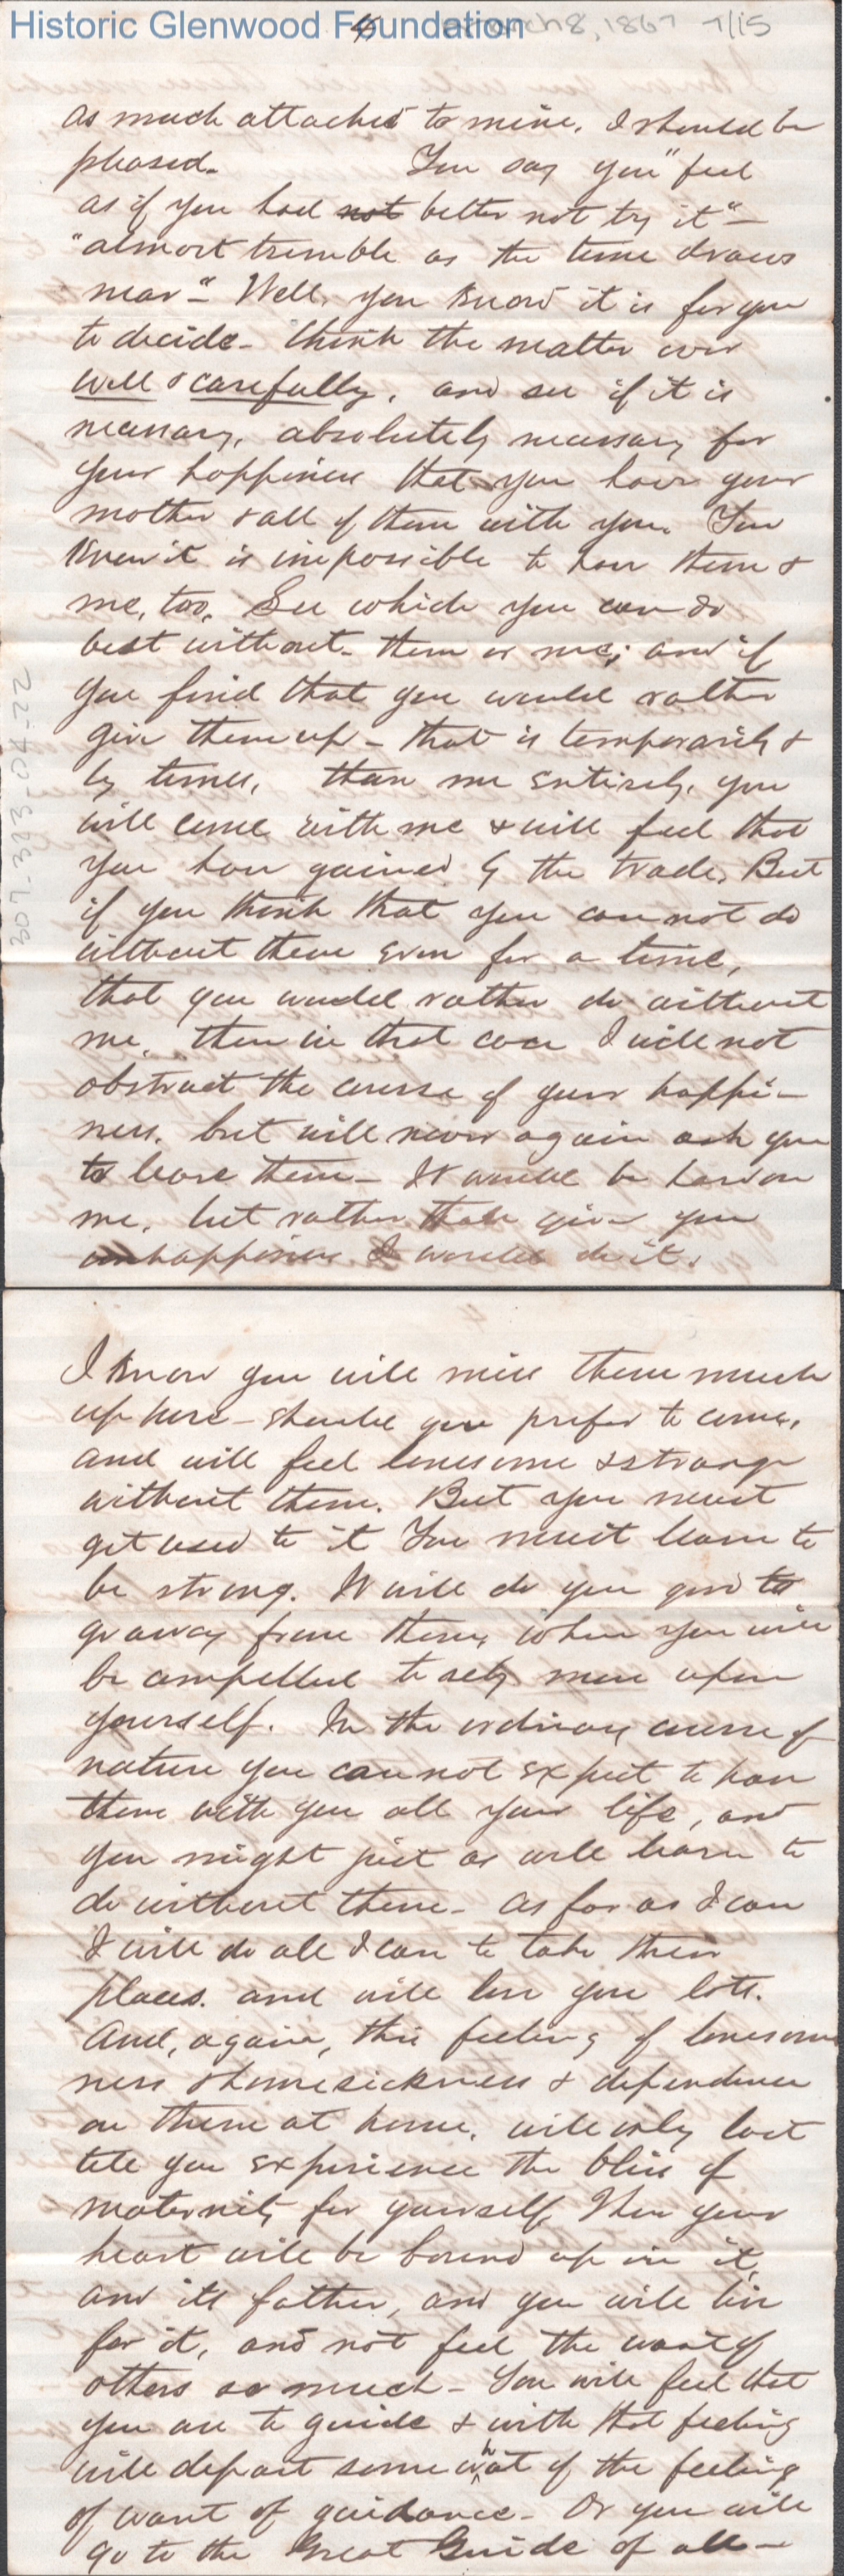 Historic Glenwood Foundation
4
March 8, 1867 7/15
as much attached to mine, I should be
pleased. You say you "feel
as if you had not better not try it" —
"almost tremble as the time draws
near" - Well, you know it is for you
to decide - think the matter over
well & carefully, and see if it is
necessary, absolutely necessary for
your happiness that you have your
mother & all of them with you. You
know it is impossible to have them &
me, too. See which you can do
best without - them or me; and if
you find that you would rather
give them up - that is temporarily &
by times, than me entirely, you
will come with me & will feel that
you have gained by the trade. But
if you think that you can not do
without them even for a time,
that you would rather do without
me, then in that case I will not
obstruct the course of your happi-
ness, but will never again ask you
to leave them - It would be hard on
me, but rather than give you
unhappiness I would do it.
307-393-04-22
I know you will miss them much
up here - should you prefer to come,
and will feel lonesome & strange
without them. But you must
get used to it You must learn to
be strong. It will do you good to
go away from them, when you will
be compelled to rely more upon
yourself. In the ordinary course of
nature you cannot expect to have
them with you all your life, and
you might just as well learn to
do without them - As far as I can
I will do all I can to take their
places. and will love you lots.
And, again, this feeling of lonesome
ness & homesickness & dependence
on them at home, will only last
till you experience the bliss of
maternity for yourself, Then your
heart will be bound up in it,
and its father, and you will live
for it, and not feel the want of
others so much - You will feel that
you are to guide & with that feeling
will depart somewhat of the feeling
of want of guidance - Or you will
go to the Great Guide of all -